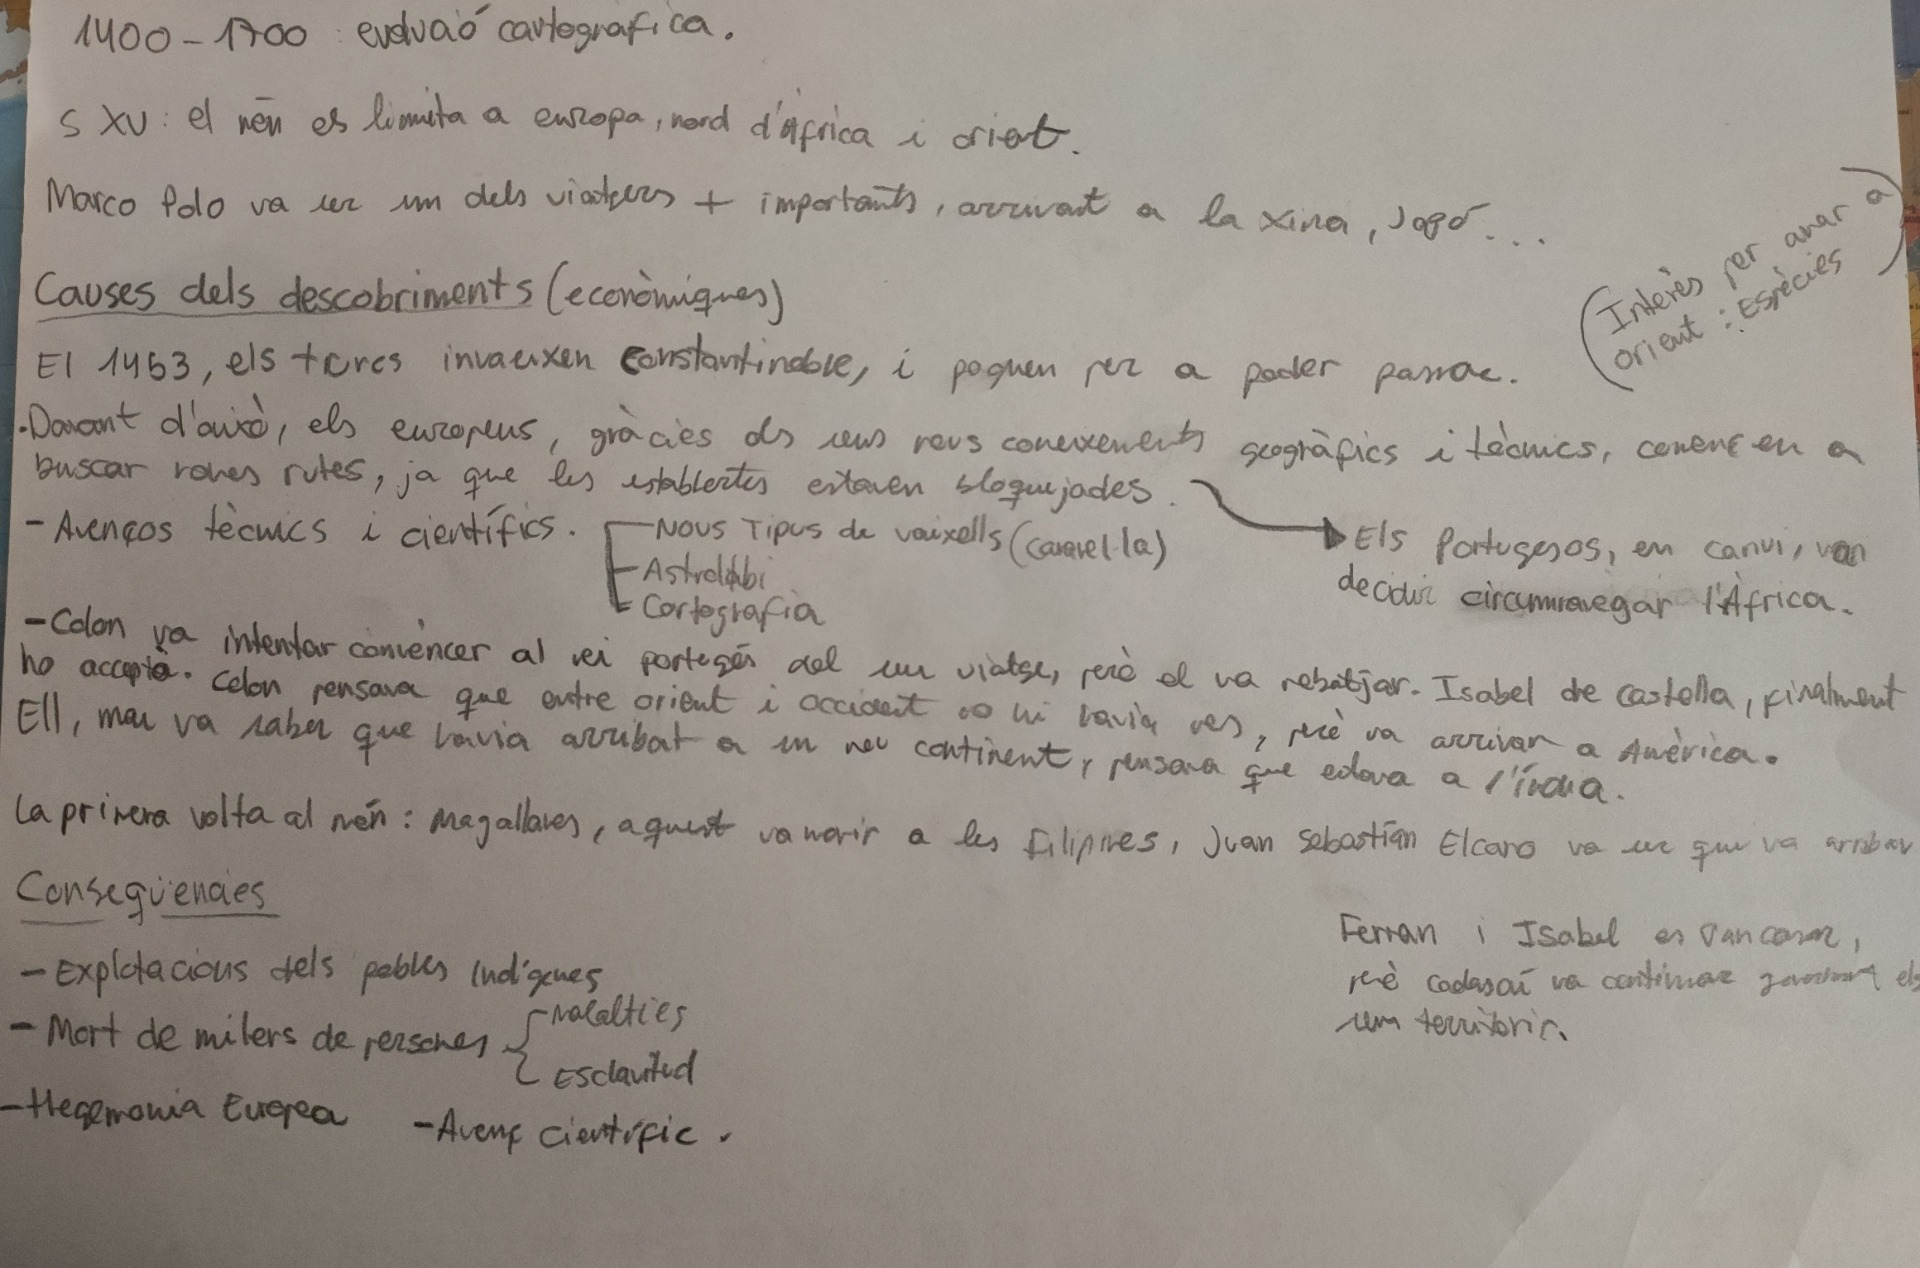 1400-1700: evolució cartografica.
S XV: el món es limita a europa, nord d'àfrica i orient.
Marco Polo va ser un dels viatgers + importants, arrivant a la xina, Japó...
(Interès per anar a
orient: Espècies)
Causes dels descobriments (econòmiques)
El 1453, els turcs invaeixen Constantinoble, i paguen per a poder passar.
·Davant d'això, els europeus, gràcies als seus nous coneixements geogràfics i tècnics, comencen a
buscar noves rutes, ja que les establertes estaven bloquejades.
Els Portugesos, en canvi, van
decidir circumnavegar l'Àfrica.
- Avenços tècnics i científics.
- Nous Tipus de vaixells (caravel·la)
- Astrolabi
- Cartografia
- Colon va intentar convèncer al rei portegés del seu viatge, però el va rebutjar. Isabel de castella, finalment
ho accepta. Colon pensava que entre orient i occident no hi havia res, però va arrivar a Amèrica.
Ell, mai va saber que havia arribat a un nou continent, pensava que estava a l'índia.
La primera volta al món: Magallanes, aquest va morir a les Filipines, Juan Sebastián Elcano va ser qui va arribar
Conseqüencies
- Explotacions dels pobles Indígenes
- Mort de milers de persones
- Malalties
Esclavitud
- Hegemonia Europea
- Avenç científic.
Ferran i Isabel es van casar,
però cadascú va continuar governant els
seus territoris.